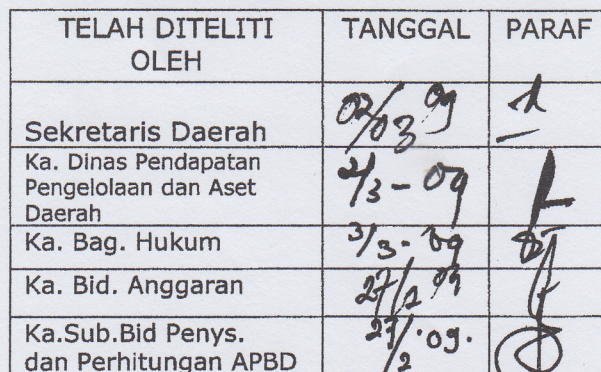 TELAH DITELITI TANGGAL PARAF
OLEH
Sekretaris Daerah 02/03 09
Ka. Dinas Pendapatan
Pengelolaan dan Aset 2/3 - 09
Daerah
Ka. Bag. Hukum 3/3 - 09
Ka. Bid. Anggaran 27/2 09
Ka.Sub.Bid Penys. 27/2 · 09.
dan Perhitungan APBD